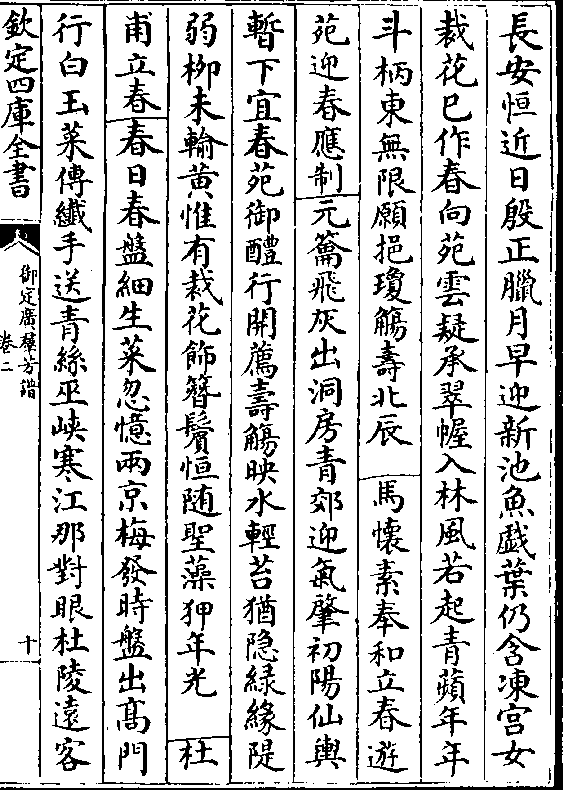 長安恒近日殷正臘月早迎新池魚戱葉仍含凍宫女
裁花已作春向苑雲疑承翠幄入林風若起青蘋年年
斗柄東無限願挹瓊觴壽北辰　馬懷素奉和立春遊
苑迎春應制元籥飛灰出洞房青郊迎氣肇初陽仙輿
暫下宜春苑御醴行開薦壽觴映水輕苔猶隐緑緣隄
弱栁未輸黄惟有裁花飾簪鬢恒随聖藻狎年光　杜
甫立春春日春盤細生菜忽憶兩京梅發時盤出髙門
行白玉菜傳纎手送青絲巫峽寒江那對眼杜陵遠客
欽定四庫全書
御定廣羣芳譜
卷二
十